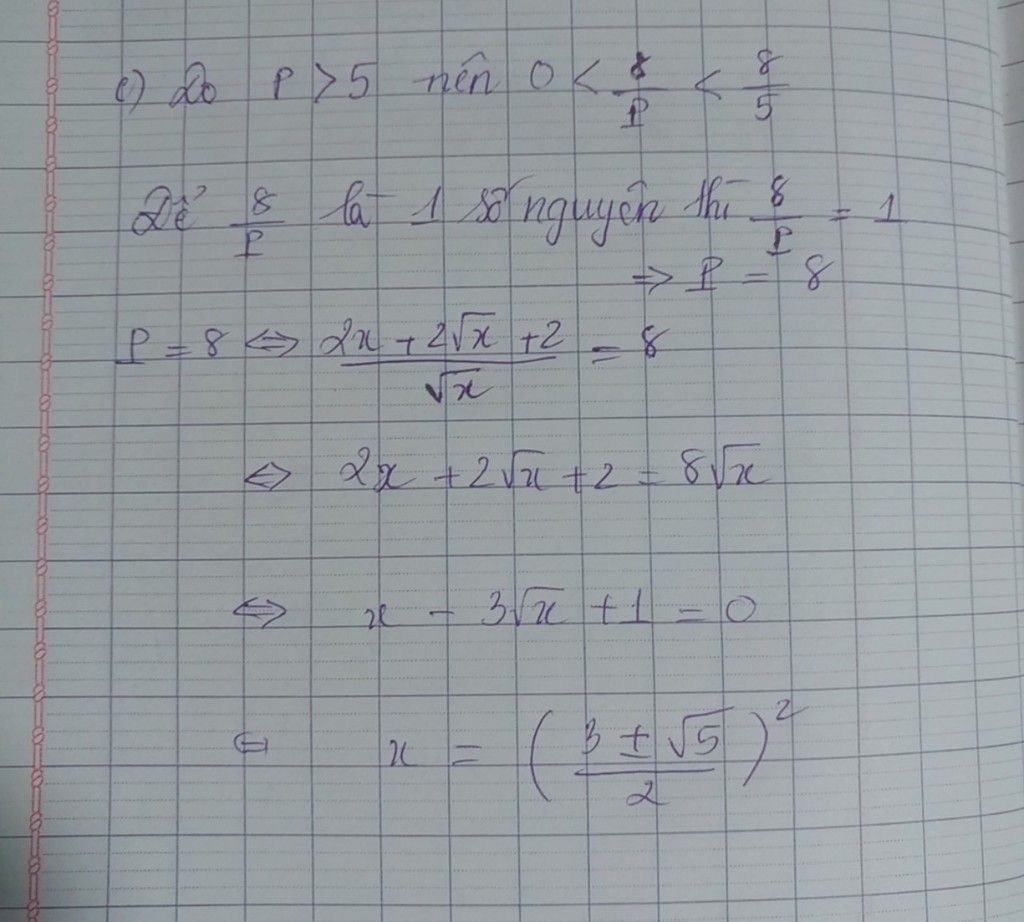 c) Do P > 5 nên 0 < 8/P < 8/5
Để 8/P là 1 số nguyên thì 8/P = 1
⇒ P = 8
P = 8 ⇔ (2x + 2√x + 2)/√x = 8
⇔ 2x + 2√x + 2 = 8√x
⇔ x - 3√x + 1 = 0
⇔ x = ((3 ± √5)/2)²